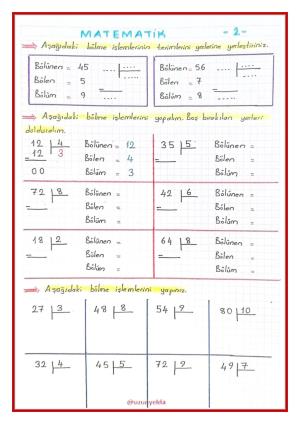 MATEMATİK - 2 -
Aşağıdaki bölme işlemlerinin terimlerini yerlerine yerleştiriniz.
Bölünen = 45
Bölen = 5
Bölüm = 9
Bölünen = 56
Bölen = 7
Bölüm = 8
Aşağıdaki bölme işlemlerini yapalım. Boş bırakılan yerleri
dolduralım.
12 4 Bölünen = 12
12 3 Bölen = 4
00 Bölüm = 3
35 5 Bölünen =
Bölen =
Bölüm =
72 8 Bölünen =
Bölen =
Bölüm =
42 6 Bölünen =
Bölen =
Bölüm =
18 2 Bölünen =
Bölen =
Bölüm =
64 8 Bölünen =
Bölen =
Bölüm =
Aşağıdaki bölme işlemlerini yapınız.
27 3 48 8 54 9 80 10
32 4 45 5 72 9 49 7
@uzunyekta